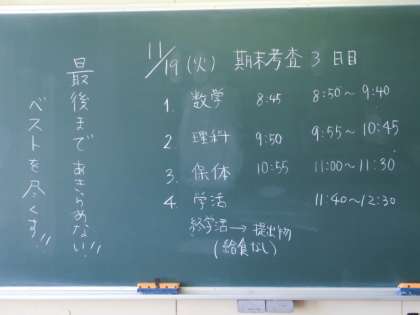 11/19(火) 期末考査 3日目
1. 数学 8:45 8:50〜9:40
2. 理科 9:50 9:55〜10:45
3. 保体 10:55 11:00〜11:30
4. 学活 11:40〜12:30
終学活→提出物
(給食なし)
最後まであきらめない!!
ベストを尽くす!!